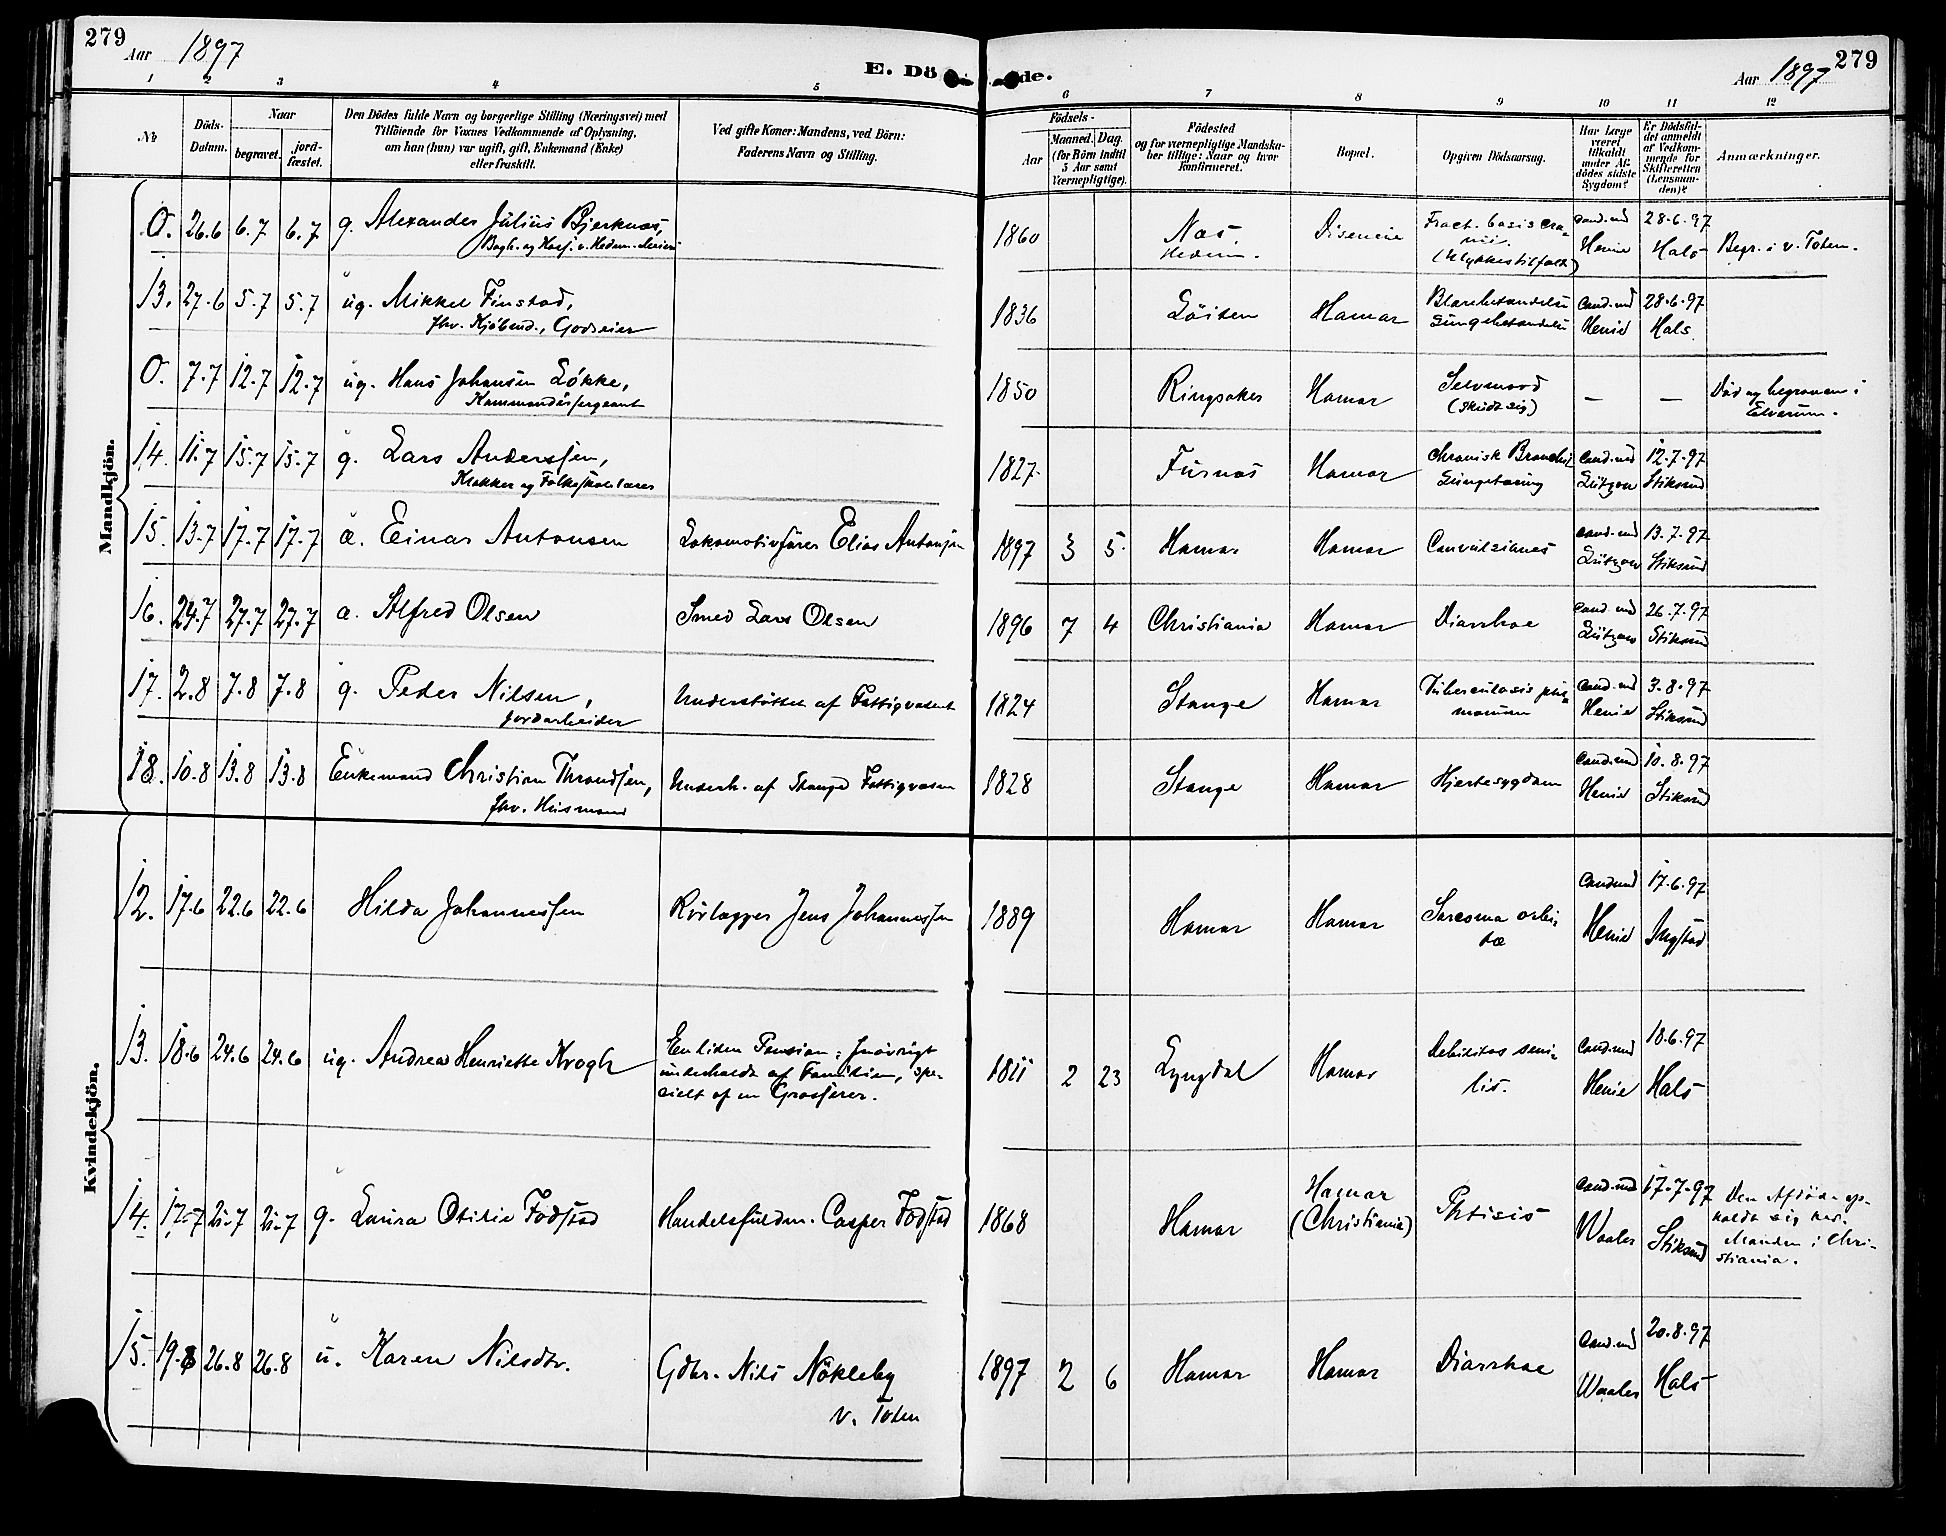 279 Aar 1897 E. Dö de. Aar 1897 279
1 2 3 4 5 6 7 8 9 10 11 12
No
Döds-Datum.
Naar
begravet.
jord-fæstet.
Den Dödes fulde Navn og borgerlige Stilling (Næringsvei) med
Tilföiende for Voxnes Vedkommende af Oplysning,
om han (hun) var ugift, gift, Enkemand (Enke)
eller fraskilt.
Ved gifte Koner: Mandens, ved Börn:
Faderens Navn og Stilling.
Födsels-
Aar
Maaned. Dag.
(for Börn indtil
5 Aar samt
Værnepligtige).
Födested
og for værnepligtige Mandska-
ber tillige: Naar og hvor
konfirmeret.
Bopæl.
Opgiven Dödsaarsag.
Har Læge
været
tilkaldt
under Af-
dödes sidste
Sygdom?
Er Dödsfal-
det anmeldt
af Vedkom-
mende for
Skifteretten
(Lensman-
den)?
Anmærkninger.
Mandkjön.
0. 26.6 6.7 6.7 g. Alexander Julius Bjerknes, 1860 Næs, Hedem. Diseneie Fract. basis cra-
nii. (Ulykkestilfælde) cand. med Henie 28-6-97 Hals Begr. i V. Toten.
13. 27.6 5.7 5.7 ug. Mikkel Finstad,
fhv. Kjöbmd., Godseier 1836 Löiten Hamar Blærebetændelse
Lungebetændelse cand. med Henie 28-6-97 Hals.
0. 7.7 12.7 12.7 ug. Hans Johansen Lökke,
Kommandersergeant 1850 Ringsaker Hamar Selvmord
(skudt sig) — — Död og begraven i
Elverum.
14. 11.7 15.7 15.7 g. Lars Anderssen,
Klokker og Folkeskolelærer 1827 Furnæs Hamar Chronisk Bronchit
Lungetæring cand. med Lützow 12-7-97 Stiksrud
15. 13.7 17.7 17.7 a. Einar Antonsen Lokomotivförer Elias Antonsen 1897 3 5. Hamar Hamar Convulsiones cand. med Lützow 13.7.97 Stiksrud
16. 24.7 27.7 27.7 a. Alfred Olsen Smed Lars Olsen 1896 7 4 Christiania Hamar Diarrhoe cand. med Lützow 26.7.97 Stiksrud
17. 2.8 7.8 7.8 g. Peder Nilsen,
Jordarbeider Understöttet af Fattigvæsenet 1824 Stange Hamar Tuberculosis pul-
monum cand. med Henie 3-8-97 Stiksrud
18. 10.8 13.8 13.8 Enkemand Christian Throndsen,
fhv. Husmand Underh. af Stange Fattigvæsen 1828 Stange Hamar Hjertesygdom cand. med Henie 10.8.97 Stiksrud
Kvindekjön.
12. 17.6 22.6 22.6 Hilda Johannessen Rörlægger Jens Johannessen 1889 Hamar Hamar Sarcoma orbi-
tæ cand med Henie 17.6.97
13. 18.6 24.6 24.6 ug. Andrea Henriette Krogh En liden Pension; Iøvrigt
underholdt af Familien, spe-
cielt af en Grosserer. 1811 2 23 Lyngdal Hamar Debilitas seni-
lis. cand. med Henie 18.6.97 Hals
14. 17.7 21.7 21.7 g. Laura Otilie Fodstad Handelsfuldm. Casper Fodstad 1868 Hamar Hamar
(Christiania) Phtisis cand. med Waaler 17-7-97 Stiksrud Den Afdöde op-
holdt sig her.
Manden i Chri-
stiania.
15. 19.8 26.8 26.8 u. Karen Nilsdtr. Gdbr. Nils Nökleby
V. Toten 1897 2 6 Hamar Hamar Diarrhoe cand. med Waaler 20.8.97 Hals